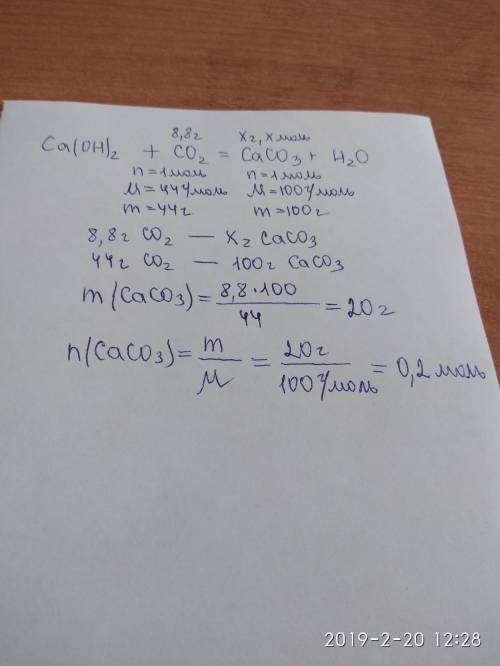 8,8г xг, x моль
Ca(OH)₂ + CO₂ = CaCO₃ + H₂O
n = 1 моль n = 1 моль
M = 44 г/моль M = 100 г/моль
m = 44 г m = 100 г
8,8 г CO₂ — xг CaCO₃
44 г CO₂ — 100 г CaCO₃
m (CaCO₃) = 8,8 · 100 / 44 = 20 г
n (CaCO₃) = m / M = 20 г / 100 г/моль = 0,2 моль
2019-2-20 12:28